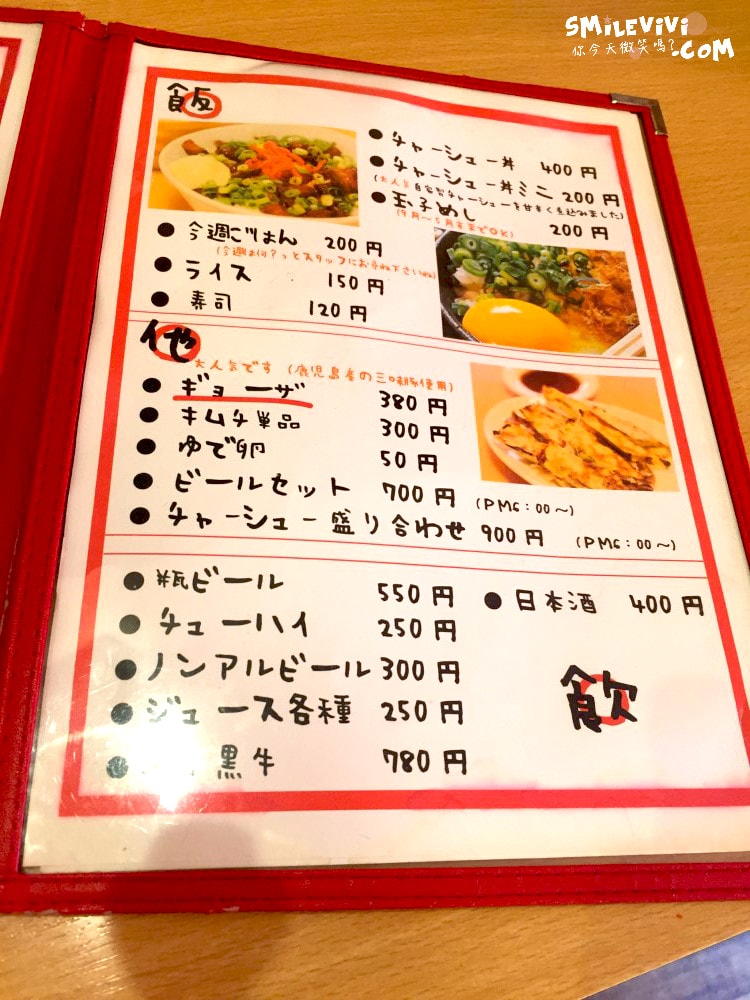 SMiLEViVi
你今天微笑嗎?.COM
飯
● チャーシュー丼 400円
● チャーシュー丼ミニ 200円
(大人気自家製チャーシューを甘辛く煮込みました)
● 玉子めし 200円
(9月〜5月末までOK)
● 今週ごはん 200円
(今週は何?っとスタッフにお尋ね下さいね)
● ライス 150円
● 寿司 120円
他
大人気です (鹿児島産の三味豚使用)
● ギョーザ 380円
● キムチ単品 300円
● ゆで卵 50円
● ビールセット 700円 (PM6:00〜)
● チャーシュー盛り合わせ 900円 (PM6:00〜)
● 瓶ビール 550円
● 日本酒 400円
● チューハイ 250円
● ノンアルビール 300円
● ジュース各種 250円
● 黒牛 780円
飲